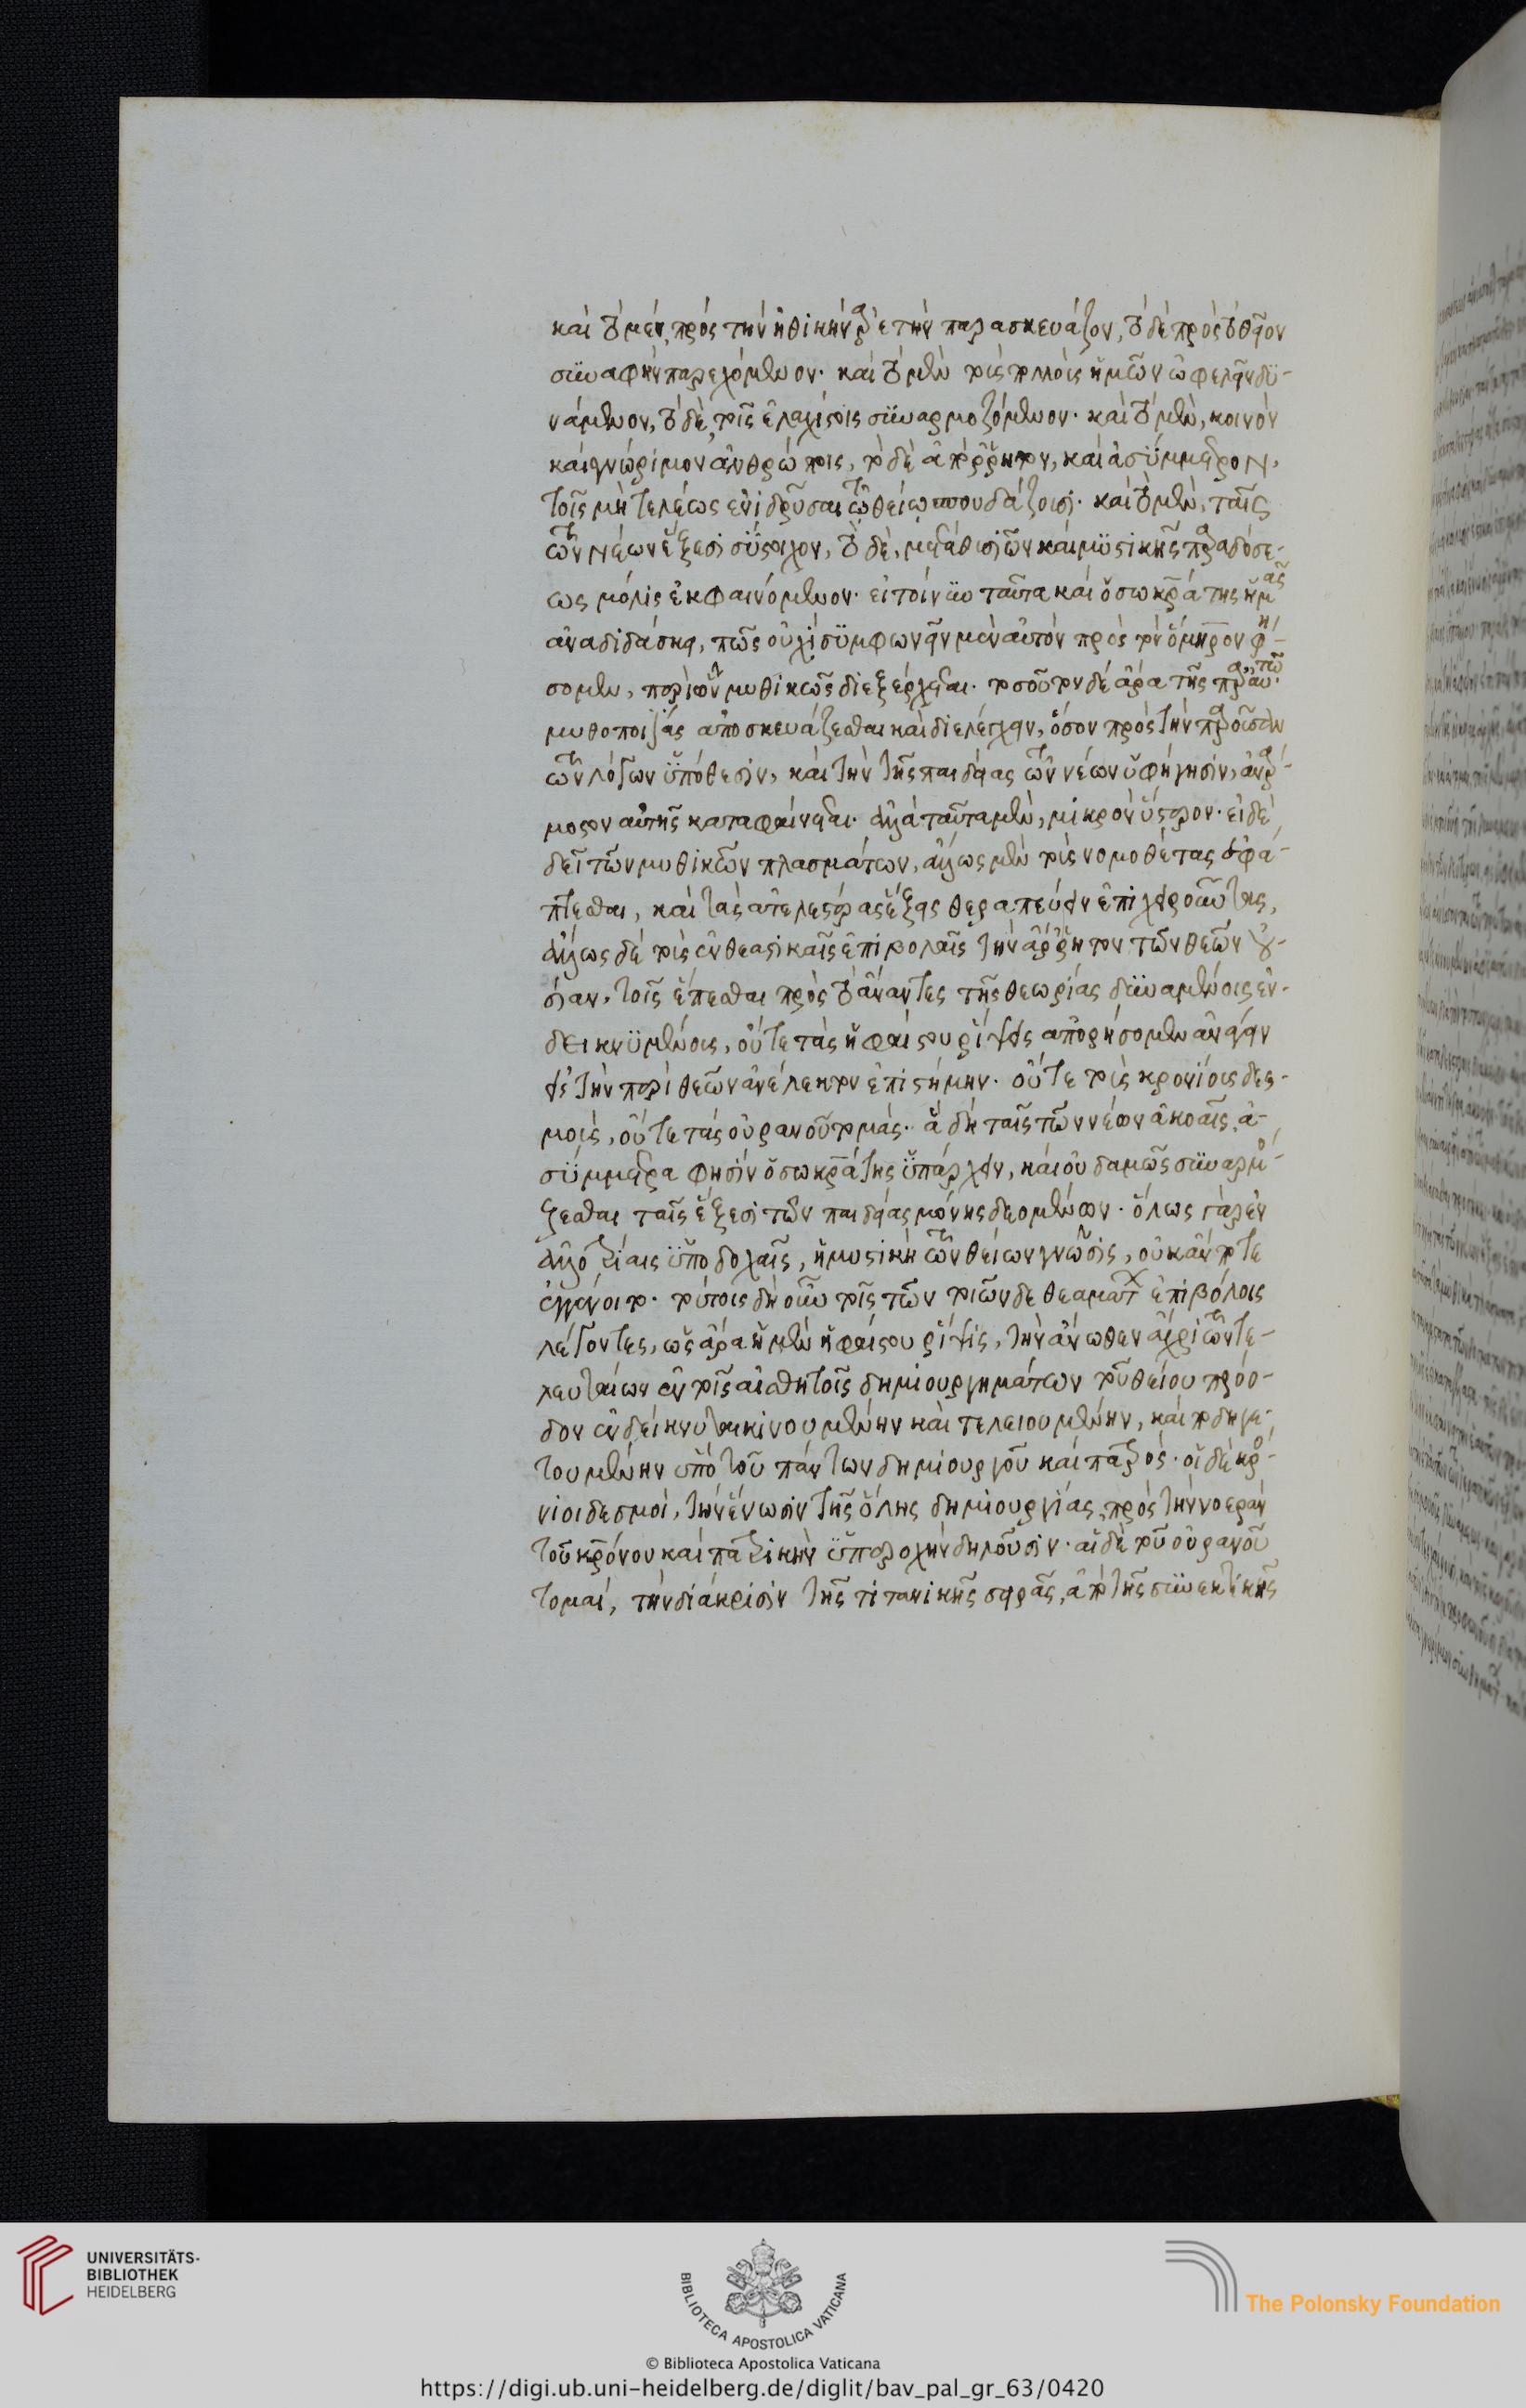 καὶ τὸ μὲν, πρὸς τὴν ἠθικὴν ἀρετὴν παρασκευάζον, τὸ δὲ πρὸς τὸ θεῖον
συναφὴν παρεχόμενον· καὶ τὸ μὲν τοὺς πολλοὺς ἡμῶν ὠφελεῖν δυ-
νάμενον, τὸ δὲ, τοῖς ἐλαχίστοις συναρμοζόμενον· καὶ τὸ μὲν, κοινὸν
καὶ γνώριμον ἀνθρώποις, τὸ δὲ ἀπόρρητον, καὶ ἀσύμμετρον,
τοῖς μὴ τελέως ἐνιδρῦσαι τῷ θείῳ σπουδάζουσι· καὶ τὸ μὲν, ταῖς
τῶν νέων ἕξεσι σύστοιχον, τὸ δὲ, μετὰ θυσιῶν καὶ μυστικῆς παραδόσε-
ως μόλις ἐκφαινόμενον· εἰ τοίνυν ταῦτα καὶ ὁ σωκράτης ἡμᾶς
ἀναδιδάσκει, πῶς οὐχὶ συμφωνεῖν μὲν αὐτὸν πρὸς τὸν ὅμηρον φή-
σομεν, περὶ ὧν μυθικῶς διεξέρχεται· τοσοῦτον δὲ ἄρα τῆς παρ' αὐτῷ
μυθοποιΐας ἀποσκευάζεσθαι καὶ διελέγχειν, ὅσον πρὸς τὴν παροῦσαν
τῶν λόγων ὑπόθεσιν, καὶ τὴν τῆς παιδείας τῶν νέων ὑφήγησιν, ἀνάρ-
μοστον αὐτῆς καταφαίνεται· ἀλλὰ ταῦτα μὲν, μικρὸν ὕστερον· εἰ δὲ
δεῖ τῶν μυθικῶν πλασμάτων, ἄλλως μὲν τοὺς νομοθέτας ἐφά-
πτεσθαι, καὶ τὰς ἀτελεστέρας ἕξεις θεραπεύειν ἐπιχειροῦντας,
ἄλλως δὲ τοὺς ἐνθεαστικαῖς ἐπιβολαῖς τὴν ἄρρητον τῶν θεῶν οὐ-
σίαν, τοῖς ἕπεσθαι πρὸς τὸ ἄναντες τῆς θεωρίας δυναμένοις ἐν-
δεικνυμένους, οὔτε τὰς ἡφαίστου ῥίψεις ἀπορήσομεν ἀνάγειν
εἰς τὴν περὶ θεῶν ἀνέλεγκτον ἐπιστήμην· οὔτε τοὺς κρονίους δες-
μοὺς, οὔτε τὰς οὐρανοῦ τομάς· ἃ δὴ ταῖς τῶν νέων ἀκοαῖς, ἀ-
σύμμετρα φησὶν ὁ σωκράτης ὑπάρχειν, καὶ οὐδαμῶς συναρμό-
ζεσθαι ταῖς ἕξεσι τῶν παιδείας μόνης δεομένων· ὅλως γὰρ ἐν
ἀλλοτρίαις ὑποδοχαῖς, ἡ μυστικὴ τῶν θείων γνῶσις, οὐκ ἄν ποτε
ἐγγένοιτο· τούτοις δὴ οὖν τοῖς τῶν τοιῶνδε θεαμάτων ἐπιβόλοις
λέγοντες, ὡς ἄρα ἡ μὲν ἡφαίστου ῥίψις, τὴν ἄνωθεν ἄχρι τῶν τε-
λευταίων ἐν τοῖς αἰσθητοῖς δημιουργημάτων τοῦ θείου πρόο-
δον ἐνδείκνυται κινουμένην καὶ τελειουμένην, καὶ ποδηγε-
τουμένην ὑπὸ τοῦ πάντων δημιουργοῦ καὶ πατρός· οἱ δὲ κρό-
νιοι δεσμοὶ, τὴν ἕνωσιν τῆς ὅλης δημιουργίας, πρὸς τὴν νοερὰν
τοῦ κρόνου καὶ πατρικὴν ὑπεροχὴν δηλοῦσιν· αἱ δὲ τοῦ οὐρανοῦ
τομαὶ, τὴν διάκρισιν τῆς τιτανικῆς σειρᾶς, ἀπὸ τῆς συνεκτικῆς
UNIVERSITÄTS-
BIBLIOTHEK
HEIDELBERG
BIBLIOTECA APOSTOLICA VATICANA
The Polonsky Foundation
© Biblioteca Apostolica Vaticana
https://digi.ub.uni-heidelberg.de/diglit/bav_pal_gr_63/0420